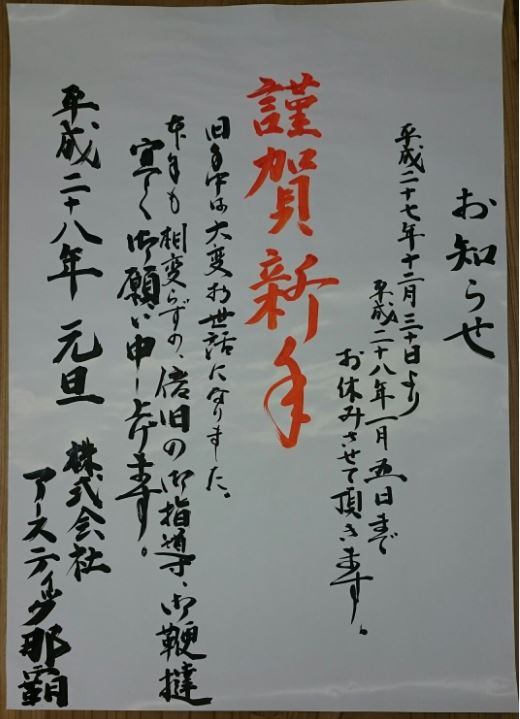 お知らせ
平成二十七年十二月三十日より
平成二十八年一月五日まで
お休みさせて頂きます。
謹賀新年
旧年中は大変お世話になりました。
本年も相変らずの、倍旧の御指導、御鞭撻
宜しく御願い申し上げます。
平成二十八年 元旦
株式会社
アースティック那覇